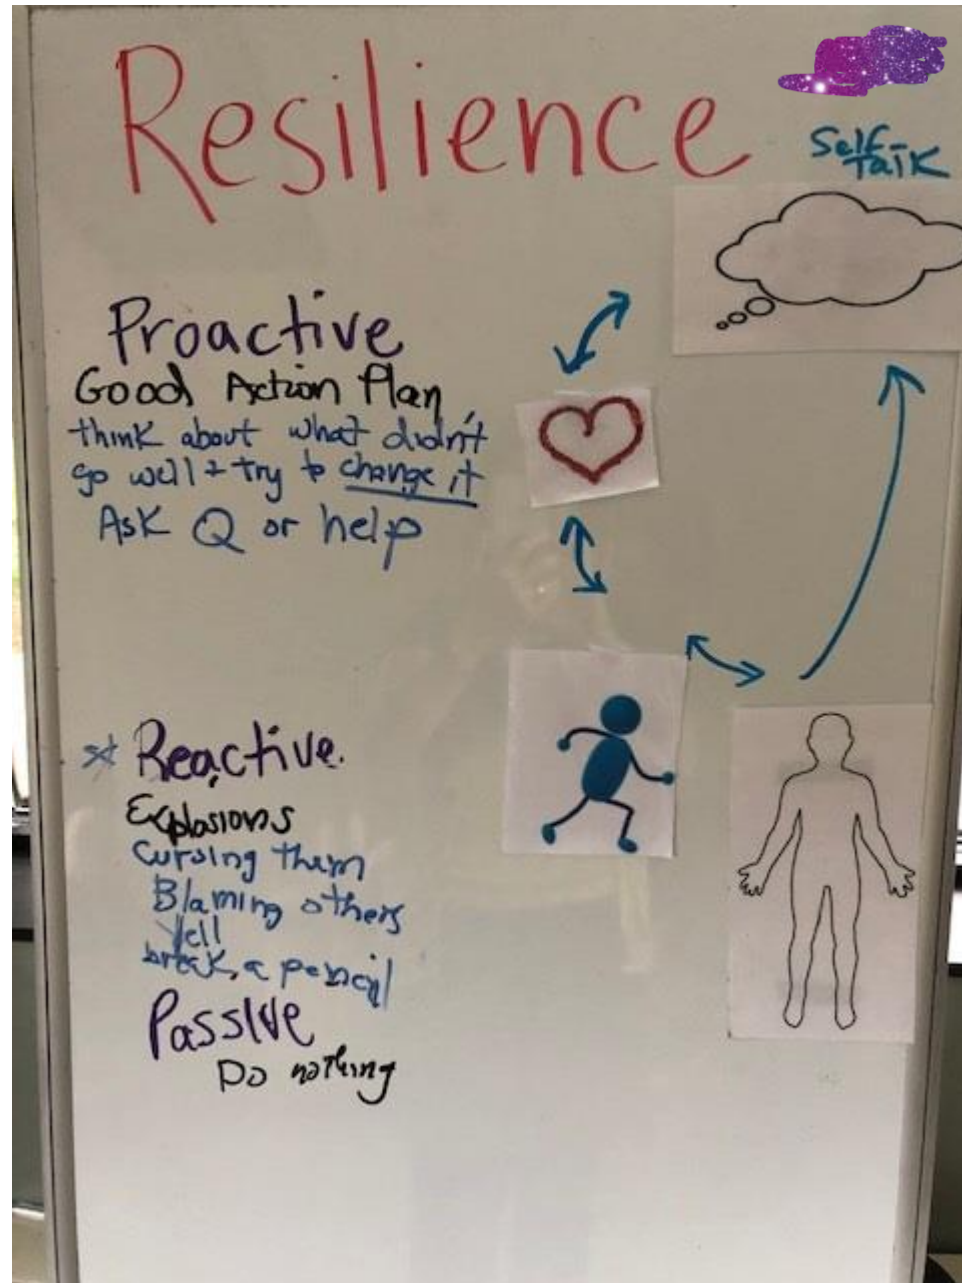 Resilience
Self-
Talk
Proactive
Good Action Plan
think about what didn't
go well + try to change it
Ask Q or help
Reactive.
Explosions
Cursing them
Blaming others
Yell
break a pencil
Passive
Do nothing